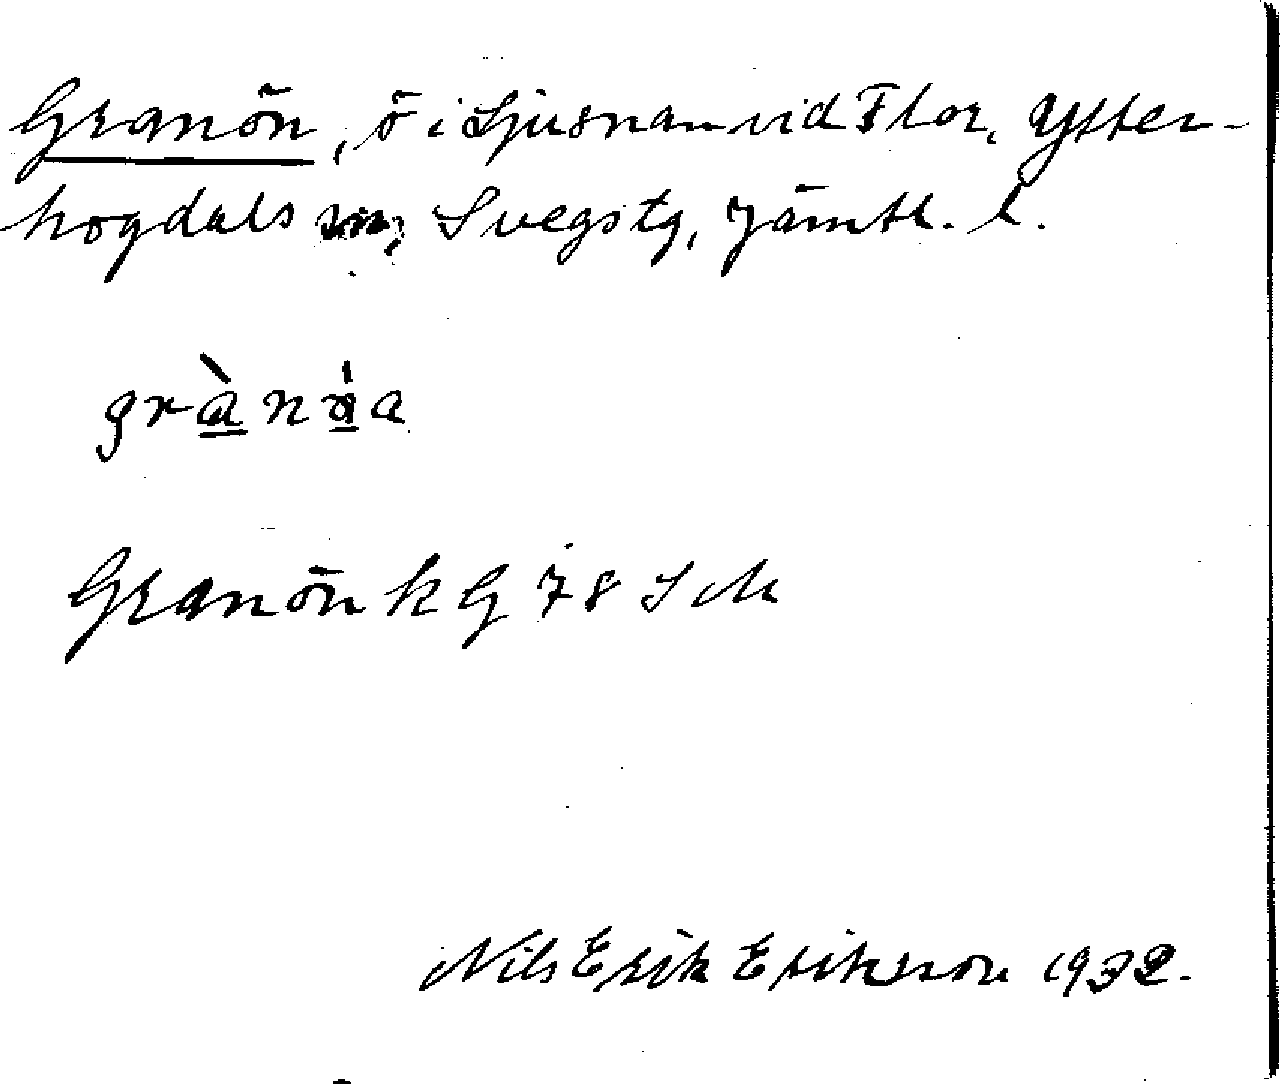 Granön, ö i Ljusnan vid Flor, Ytter-
hogdals sn, Svegs tg, Jämtl. l.
grànöa
Granön k G 78 S M
Nils Erik Erikson 1932.